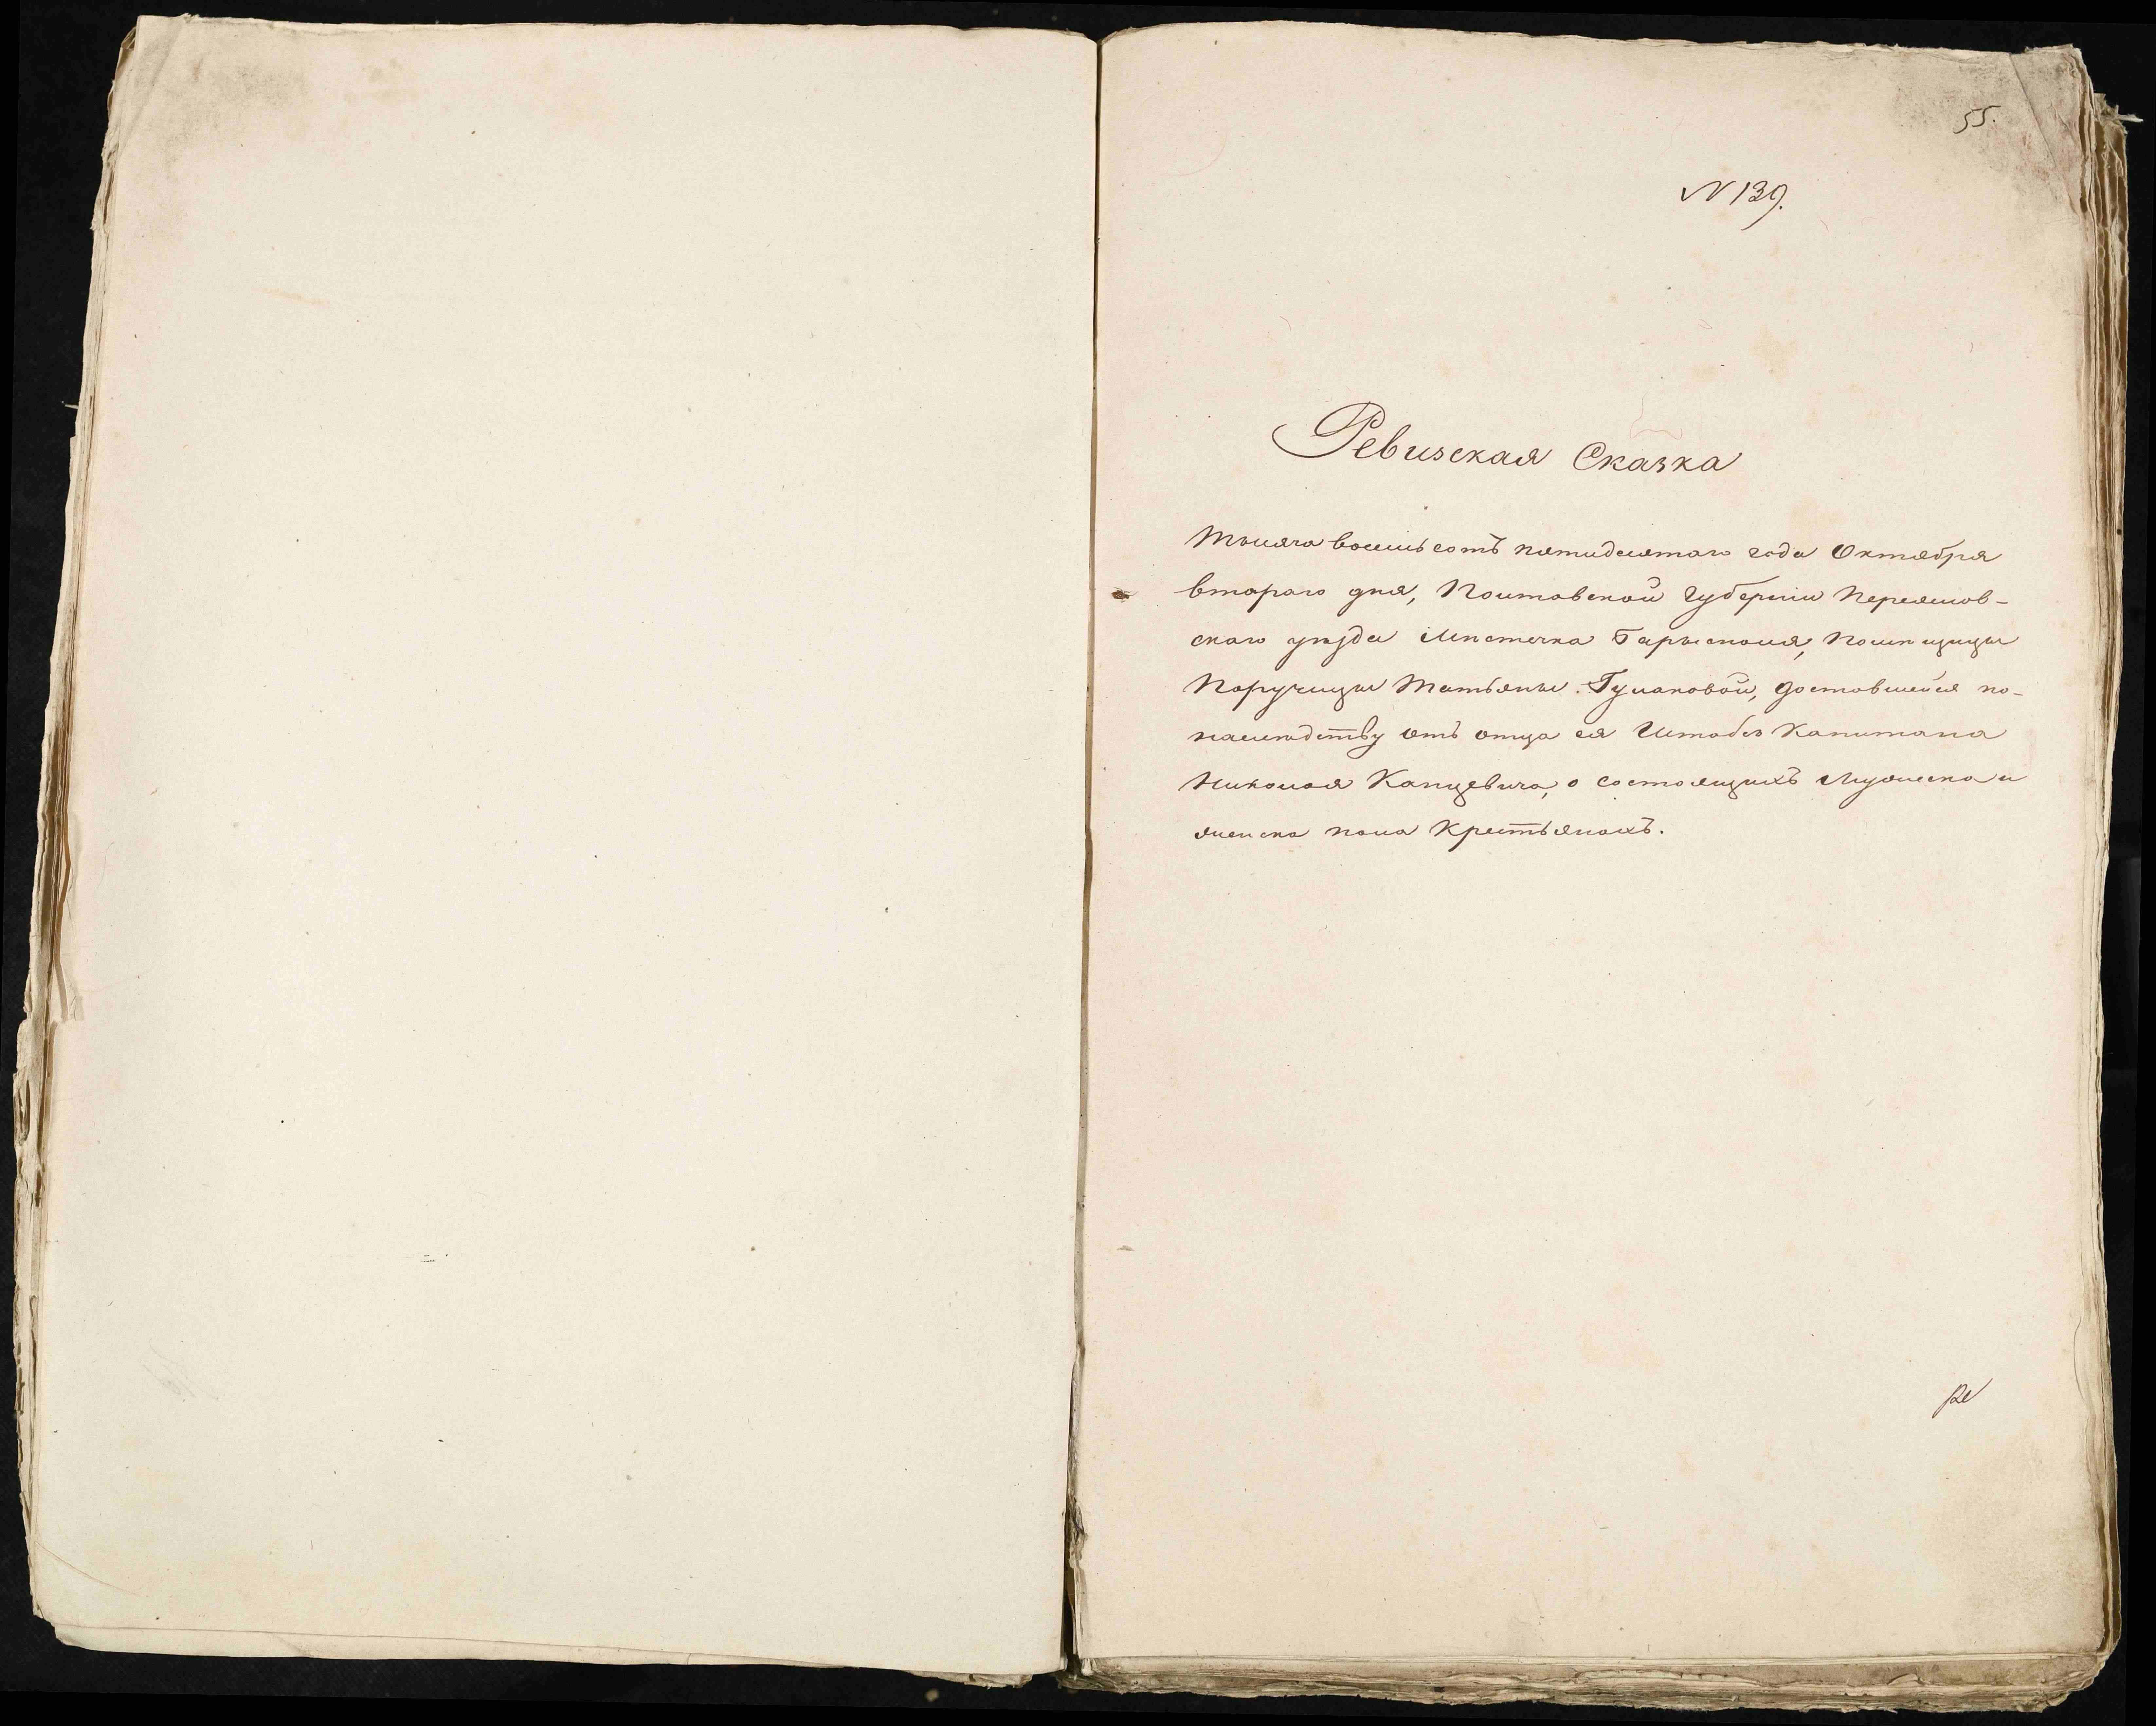 55.
N 139.
Ревизская Сказка
Тысяча восемь сотъ пятидесятаго года Октября
втораго дня, Полтавской Губерніи Переяслов-
скаго уѣзда Мѣстечка Барысполя, помѣщицы
Поручицы Татьяны Гулаковой, доставшейся по-
наслѣдству отъ отца ея Штабсъ Капитана
Николая Канцевича, о состоящихъ Мужеска и
женска пола Крестьянахъ.
Ре